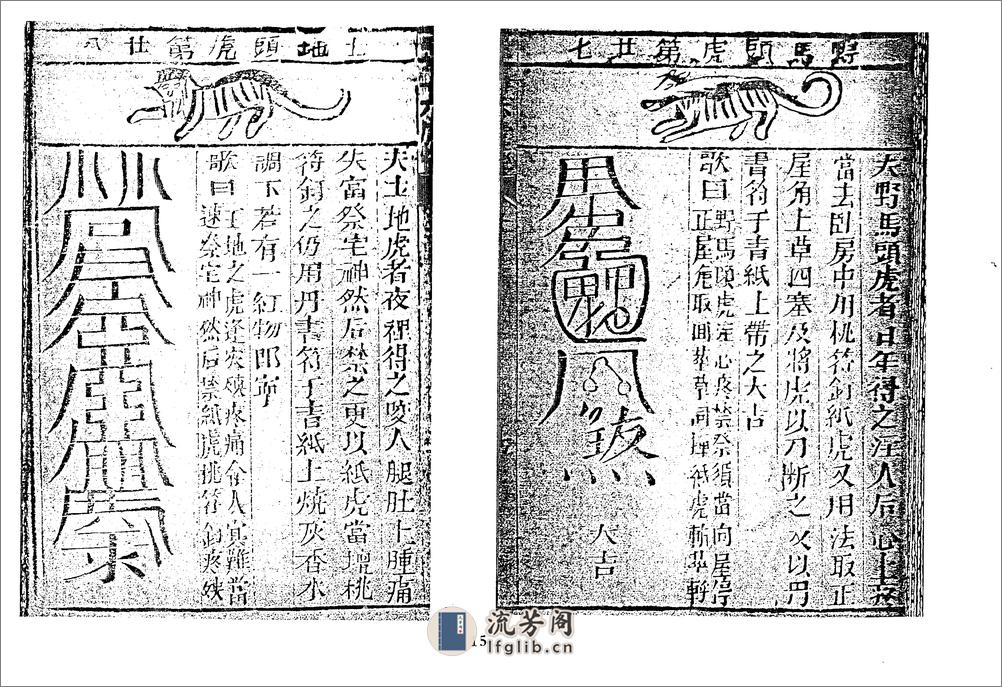 野馬頭虎第廿七
夫野馬頭虎者日年得之注人后心上疼
當去卧房中用桃符釘紙虎又用法取正
屋角上草四塞及將虎以刀断之次以丹
書符于青紙上帶之大吉
歌曰
野馬頭虎注心疼禁祭須當向屋
正屋角取四 草 埋紙虎斬
大吉
土地頭虎第廿八
夫土地虎者夜裡得之受人腿肚上腫痛
失當祭宅神然后禁之更以紙虎當壇桃
符釘之仍用丹書符于青紙上燒灰香水
調下若有一紅物即寧
歌曰
土地之虎逢灾殃疼痛令人實難當
速祭宅神然后禁紙虎桃符釘疼
15
流芳阁
lfglib.cn